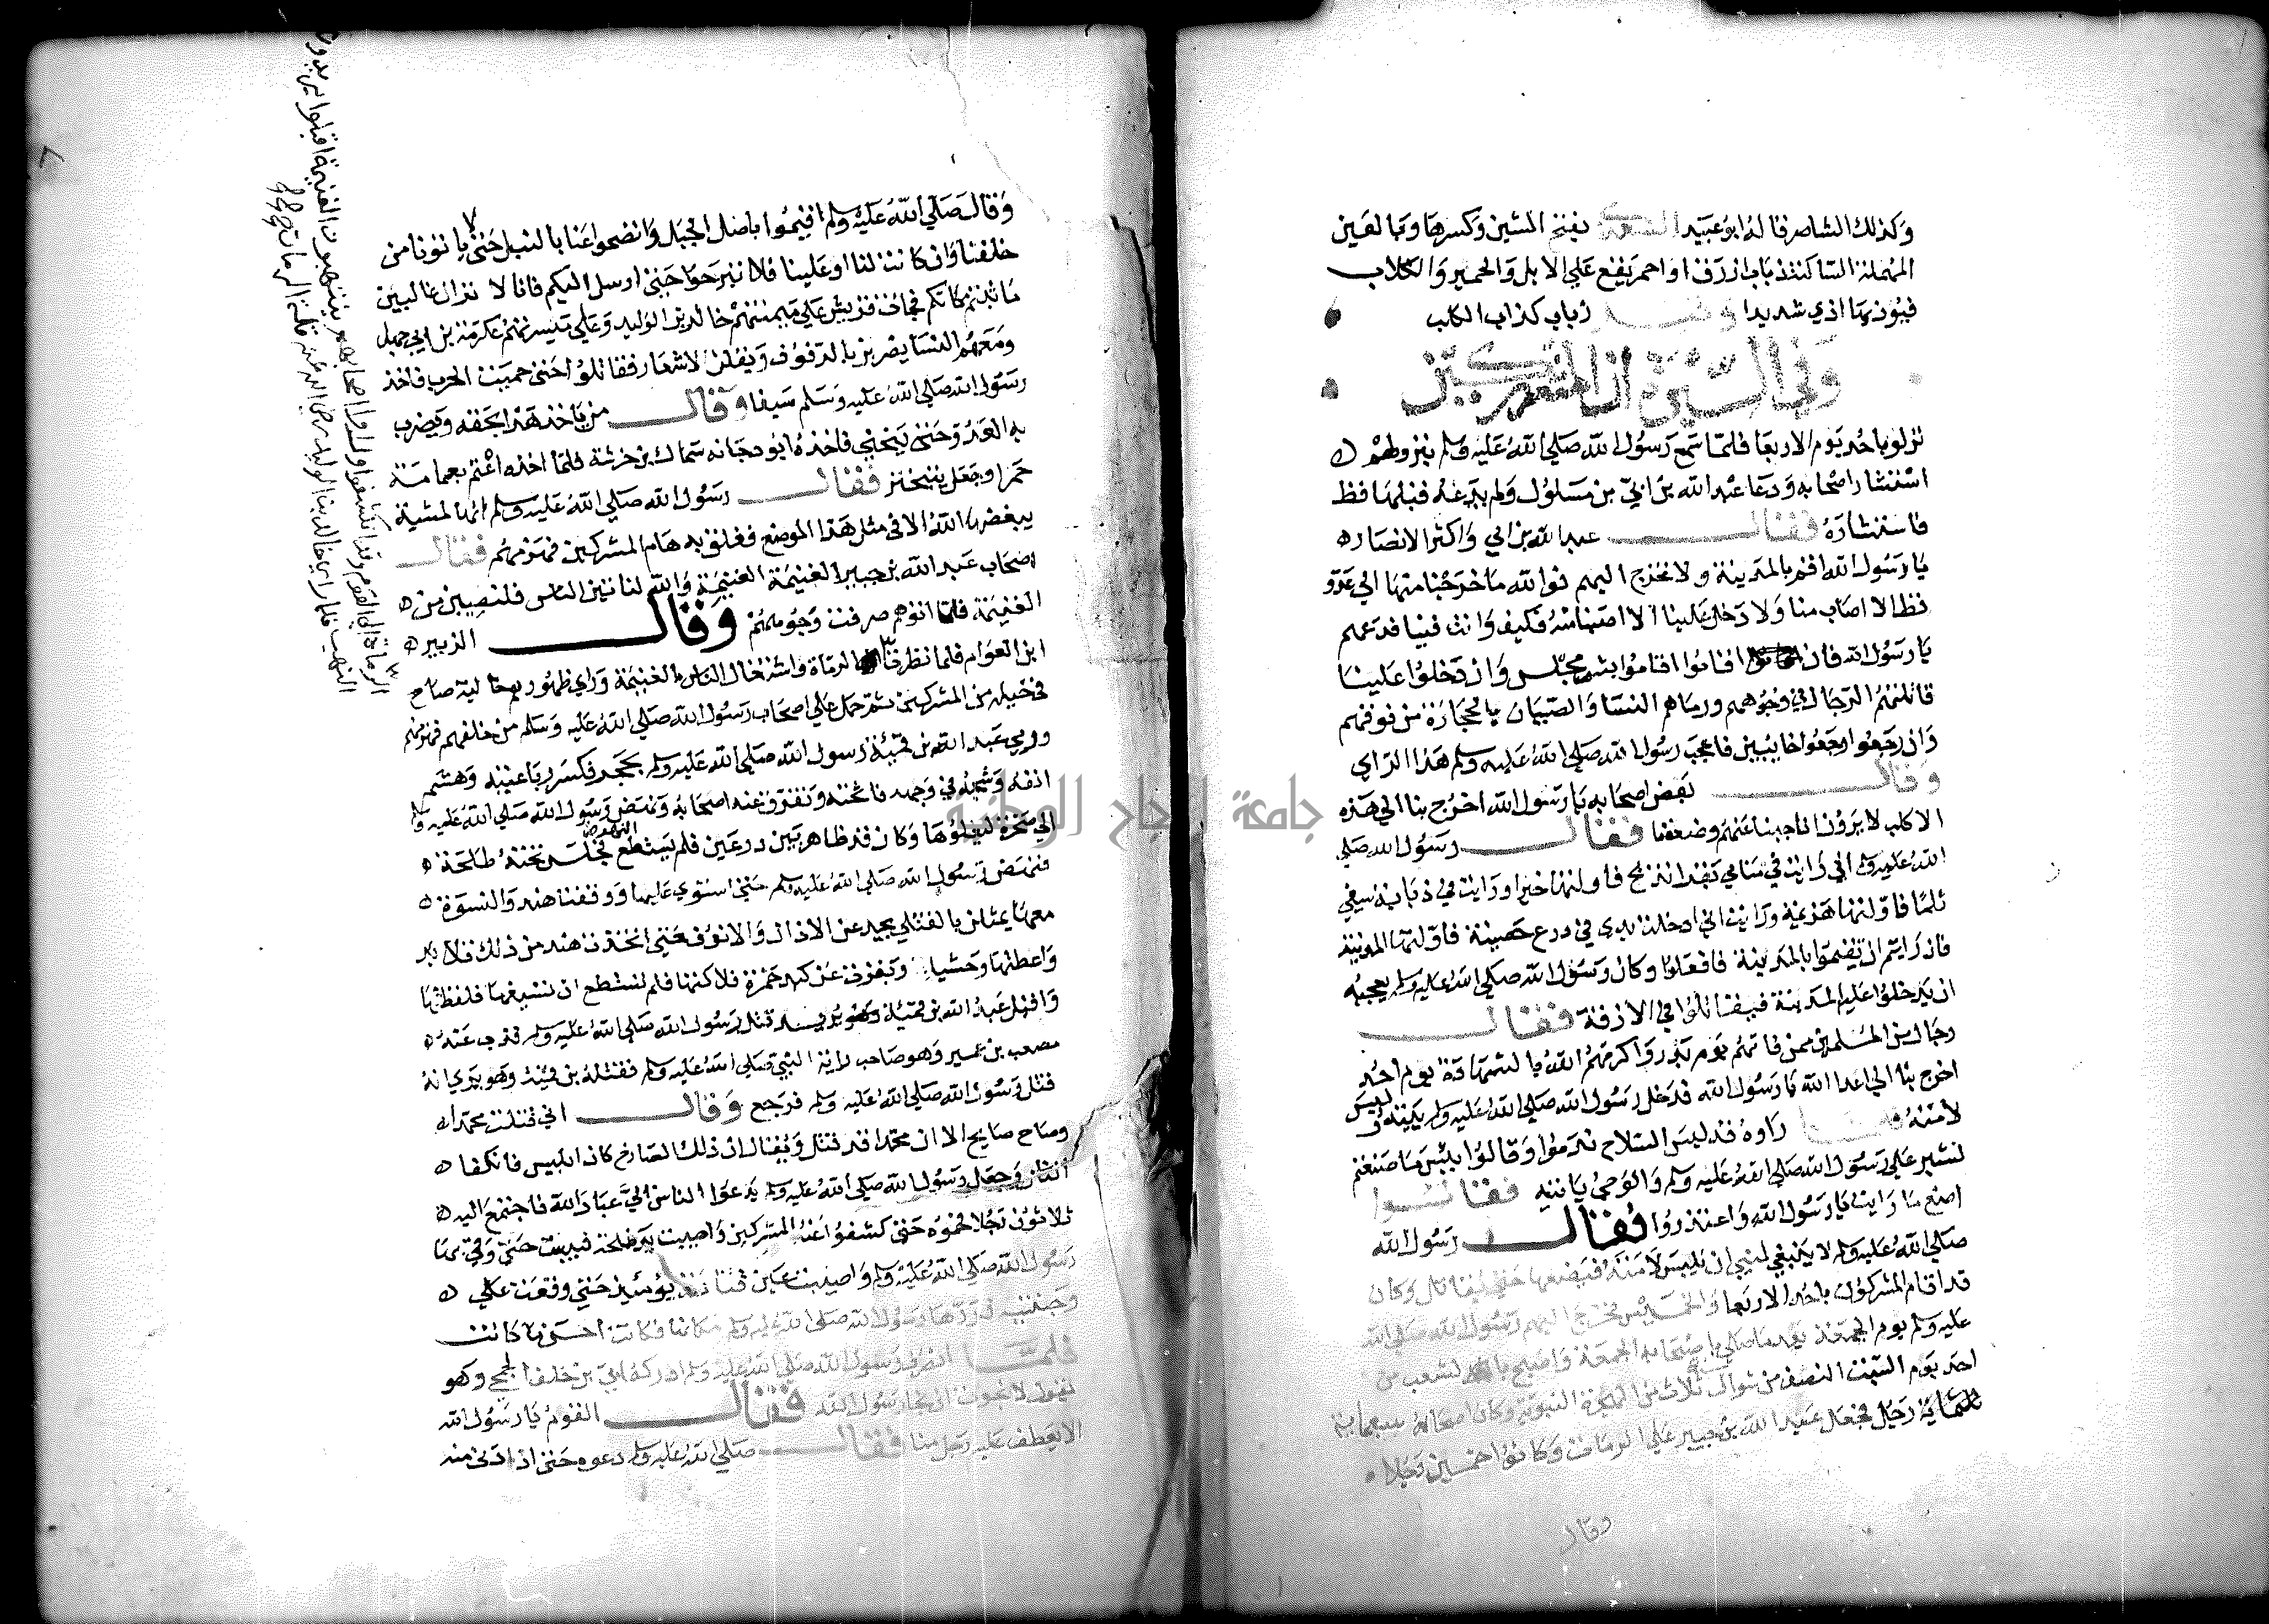 وكذلك الشاصر قاله ابو عبيد الشعرى بفتح الشين وكسرها وبالعين
المهملة الساكنة ذباب ازرق او احمر يقع علي الابل والحمير والكلاب
فيوذيها اذي شديدا وقيل ذباب كذباب الكلب
وفي السيرة ان المشركين
نزلو باحد يوم الاربعا فلما سمع رسول الله صلي الله عليه وسلم بنزولهم
استشار اصحابه ودعا عبد الله بن ابي بن سلول ولم يدعه قبلها قط
فاستشاره فقال عبد الله بن ابي واكثر الانصار
يا رسول الله اقم بالمدينة ولا تخرج اليهم فوالله ما خرجنا منها الي عدو
قط الا اصاب منا ولا دخل علينا الا اصبنا منه فكيف وانت فينا فدعهم
يا رسول الله فان اقاموا اقاموا بشر مجلس وان دخلوا علينا
قاتلتهم الرجال في وجوههم ورماهم النسا والصبيان بالحجارة من فوقهم
وان رجعوا رجعوا خايبين فاعجب رسول الله صلي الله عليه وسلم هذا الراي
وقال بعض اصحابه يا رسول الله اخرج بنا الي هذه
الاكلب لا يرون انا جبنا عنهم وضعفنا فقال رسول الله صلي
الله عليه وسلم اني رايت في منامي بقرا تذبح فاولتها خيرا ورايت في ذبابة سيفي
ثلما فاولتها هزيمة ورايت اني ادخلت يدي في درع حصينة فاولتها المدينة
فان رايتم ان تقيموا بالمدينة فافعلوا وكان رسول الله صلي الله عليه وسلم يعجبه
ان يدخلوا عليه المدينة فيقاتلوا في الازقة فقال
رجال من المسلمين ممن فاتهم يوم بدر واكرمهم الله بالشهادة يوم احد
اخرج بنا الي اعدا الله يا رسول الله فدخل رسول الله صلي الله عليه وسلم بيته ولبس
لامته فلما راوه قد لبس السلاح ندموا وقالوا بئس ما صنعتم
نشير علي رسول الله صلي الله عليه وسلم والوحي ياتيه فقالوا
اصنع ما رايت يا رسول الله واعتذروا فقال رسول الله
صلي الله عليه وسلم لا ينبغي لنبي ان يلبس لامته فيضعها حتي يقاتل وكان
قد اقام المشركون باحد الاربعا والخميس فخرج اليهم رسول الله صلي الله
عليه وسلم يوم الجمعة بعد ما صلي باصحابه الجمعة واصبح بالشعب من
احد يوم السبت النصف من شوال ثلاث من الهجرة النبوية وكان اصحابه سبعماية
رجل فجعل عبد الله بن جبير علي الرماة وكانوا خمسين رجلا
وقال
وقال صلي الله عليه وسلم اقيموا باصل الجبل وانضحوا عنا بالنبل حتي لا ياتونا من
خلفنا وان كانت لنا او علينا فلا تبرحوا حتي ارسل اليكم فانا لا نزال غالبين
ما ثبتم مكانكم فجات قريش علي ميمنتهم خالد بن الوليد وعلي ميسرتهم عكرمة بن ابي جهل
ومعهم النسا يضربن بالدفوف ويقلن الاشعار فقاتلوا حتي حميت الحرب فاخذ
رسول الله صلي الله عليه وسلم سيفا وقال من ياخذ هذا بحقه ويضرب
به العدو حتي ينحني فاخذه ابو دجانه سماك بن خرشة فلما اخذه اعتم بعمامة
حمرا وجعل يتبختر فقال رسول الله صلي الله عليه وسلم انها لمشية
يبغضها الله الا في مثل هذا الموضع ففلق به هام المشركين فهزمهم فقال
اصحاب عبد الله بن جبير الغنيمة الغنيمة والله لناتين الناس فلنصيبن من
الغنيمة فلما اتوهم صرفت وجوههم وقال الزبير
ابن العوام فلما نظر الرماة واشتغال الناس بالغنيمة وراي ظهورهم خالية صاح
في خيله من المشركين ثم حمل علي اصحاب رسول الله صلي الله عليه وسلم من خلفهم فهزمهم
ورمي عبد الله بن قمئة رسول الله صلي الله عليه وسلم بحجر فكسر رباعيته وهشم
انفه وشجه في وجهه فاثخنه وتفرق عنه اصحابه ونهض رسول الله صلي الله عليه وسلم
الي صخرة ليعلوها وكان قد ظاهر بين درعين فلم يستطع النهوض فجلس تحته طلحة
فنهض رسول الله صلي الله عليه وسلم حتي استوي عليها ووقفت هند والنسوة
معها يمثلن بالقتلي يجدعن الاذان والانوف حتي اتخذت هند من ذلك قلايد
واعطتها وحشيا وبقرت عن كبد حمزة فلاكتها فلم تستطع ان تسيغها فلفظتها
واقبل عبد الله بن قمئة وهو يريد قتل رسول الله صلي الله عليه وسلم فذب عنه
مصعب بن عمير وهو صاحب راية النبي صلي الله عليه وسلم فقتله بن قمئة وهو يري انه
قتل رسول الله صلي الله عليه وسلم فرجع وقال اني قتلت محمدا
وصاح صايح الا ان محمدا قد قتل ويقال ان ذلك الصارخ كان ابليس فانكفا
الناس وجعل رسول الله صلي الله عليه وسلم يدعوا الناس الي عباد الله فاجتمع اليه
ثلاثون رجلا فحموه حتي كشفوا عنه المشركين واصيبت يد طلحة فيبست حين وقي بها
رسول الله صلي الله عليه وسلم واصيبت عين قتادة يومئذ حتي وقعت علي
وجنتيه فردها رسول الله صلي الله عليه وسلم مكانها فكانت احسن ما كانت
فلما انصرف رسول الله صلي الله عليه وسلم ادركه ابي بن خلف الجمحي وهو
يقول لا نجوت ان نجا رسول الله فقال القوم يا رسول الله
الا يعطف عليه رجل منا فقال صلي الله عليه وسلم دعوه حتي اذا دني منه
الرماة الي القوم وقد انكشفوا وراوا اصحابهم ينتهبون الغنيمة اقبلوا يريدون
النهب فلما راي خالد بن الوليد رضي الله عنه قلة الرماة صح
جامعة النجاح الوطنية